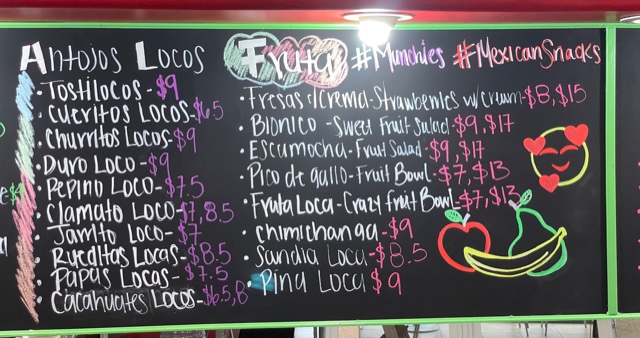 Antojos Locos
• Tostilocos - $9
• Cueritos Locos - $6.5
• Churritos Locos - $9
• Duro Loco - $9
• Pepino Loco - $7.5
• Clamato Loco - $7, 8.5
• Jamito Loco - $7
• Rueditas Locas - $8.5
• Papas Locas - $7.5
• Cacahuates Locos - $6.5, 8
Fruta #Munchies #MexicanSnacks
• Fresas c/crema - Strawberries w/cream - $8, $15
• Bionico - Sweet Fruit Salad - $9, $17
• Escamocha - Fruit Salad - $9, $17
• Pico de gallo - Fruit Bowl - $7, $13
• Fruta Loca - Crazy Fruit Bowl - $7, $13
• chimichanga - $9
• Sandia Loca - $8.5
• Pina Loca $9